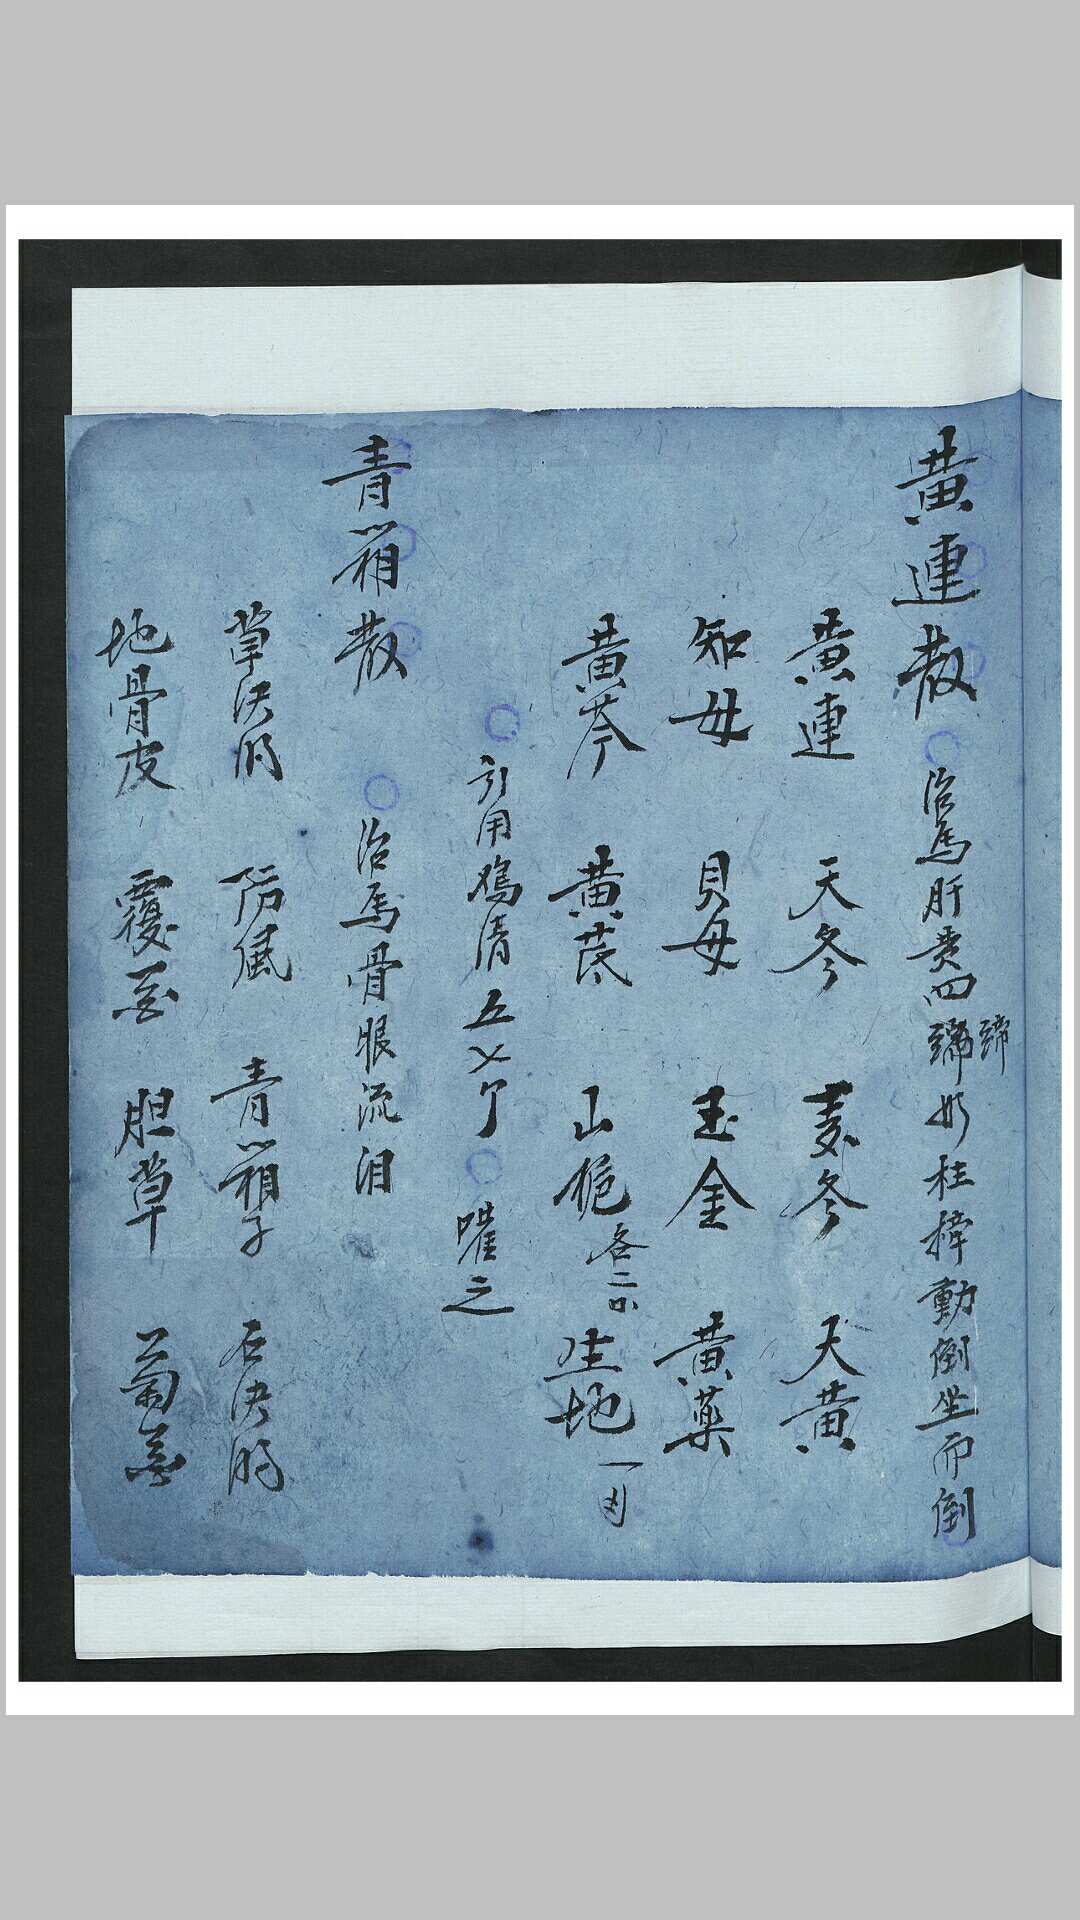 黄連散 治馬肝黄四蹄如柱揰動倒坐而倒
蹄
黄連 天冬 麦冬 大黄
知母 貝母 玉金 黄藥
黄芩 黄芪 山梔各二 生地一
引用鸡清五个 嚾之
青箱散 治馬骨眼流泪
草決明 防風 青箱子 石決明
地骨皮 覆花 胆草 菊花